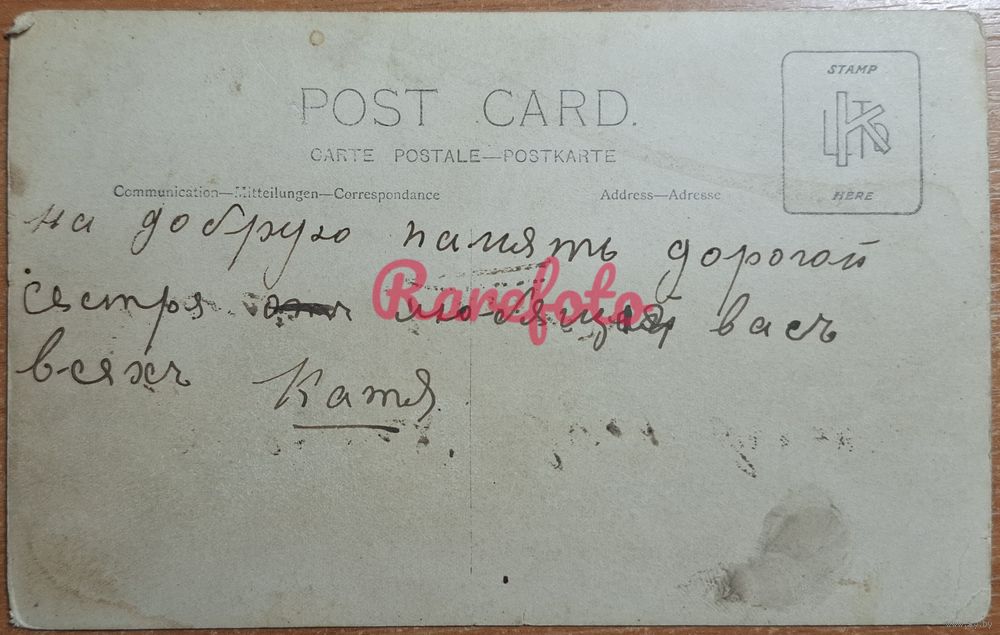 POST CARD.
CARTE POSTALE—POSTKARTE
Communication—Mitteilungen—Correspondance
Address—Adresse
STAMP
LKTD
HERE
на добрую память дорогой
сестря любящей васъ
всяхъ Катя.
Rarefoto
www.ay.by